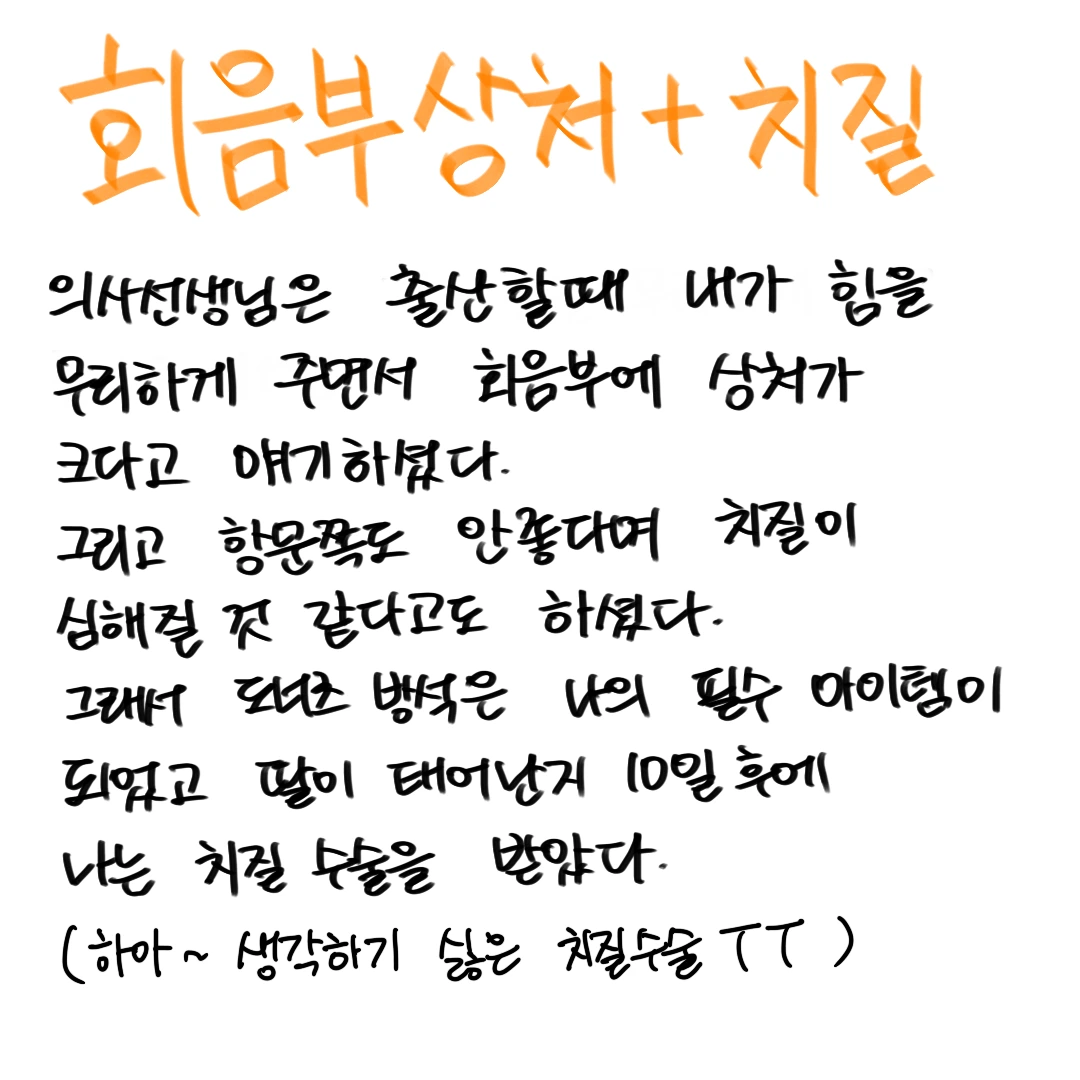 회음부상처+치질
의사선생님은 출산할때 내가 힘을
무리하게 주면서 회음부에 상처가
크다고 얘기하셨다.
그리고 항문쪽도 안좋다며 치질이
심해질 것 같다고도 하셨다.
그래서 도너츠 방석은 나의 필수 아이템이
되었고 딸이 태어난지 10일 후에
나는 치질 수술을 받았다.
(하아~ 생각하기 싫은 치질수술 TT)